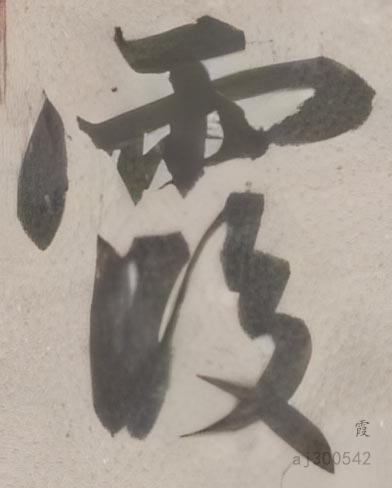 霞
霞
aj300542